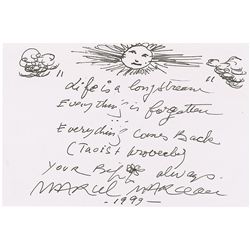 "Life is a long stream
Everything is forgotten
Everything comes Back"
(Taoist proverb)
YOUR BIP always.
MARCEL MARCEAU
-1999-